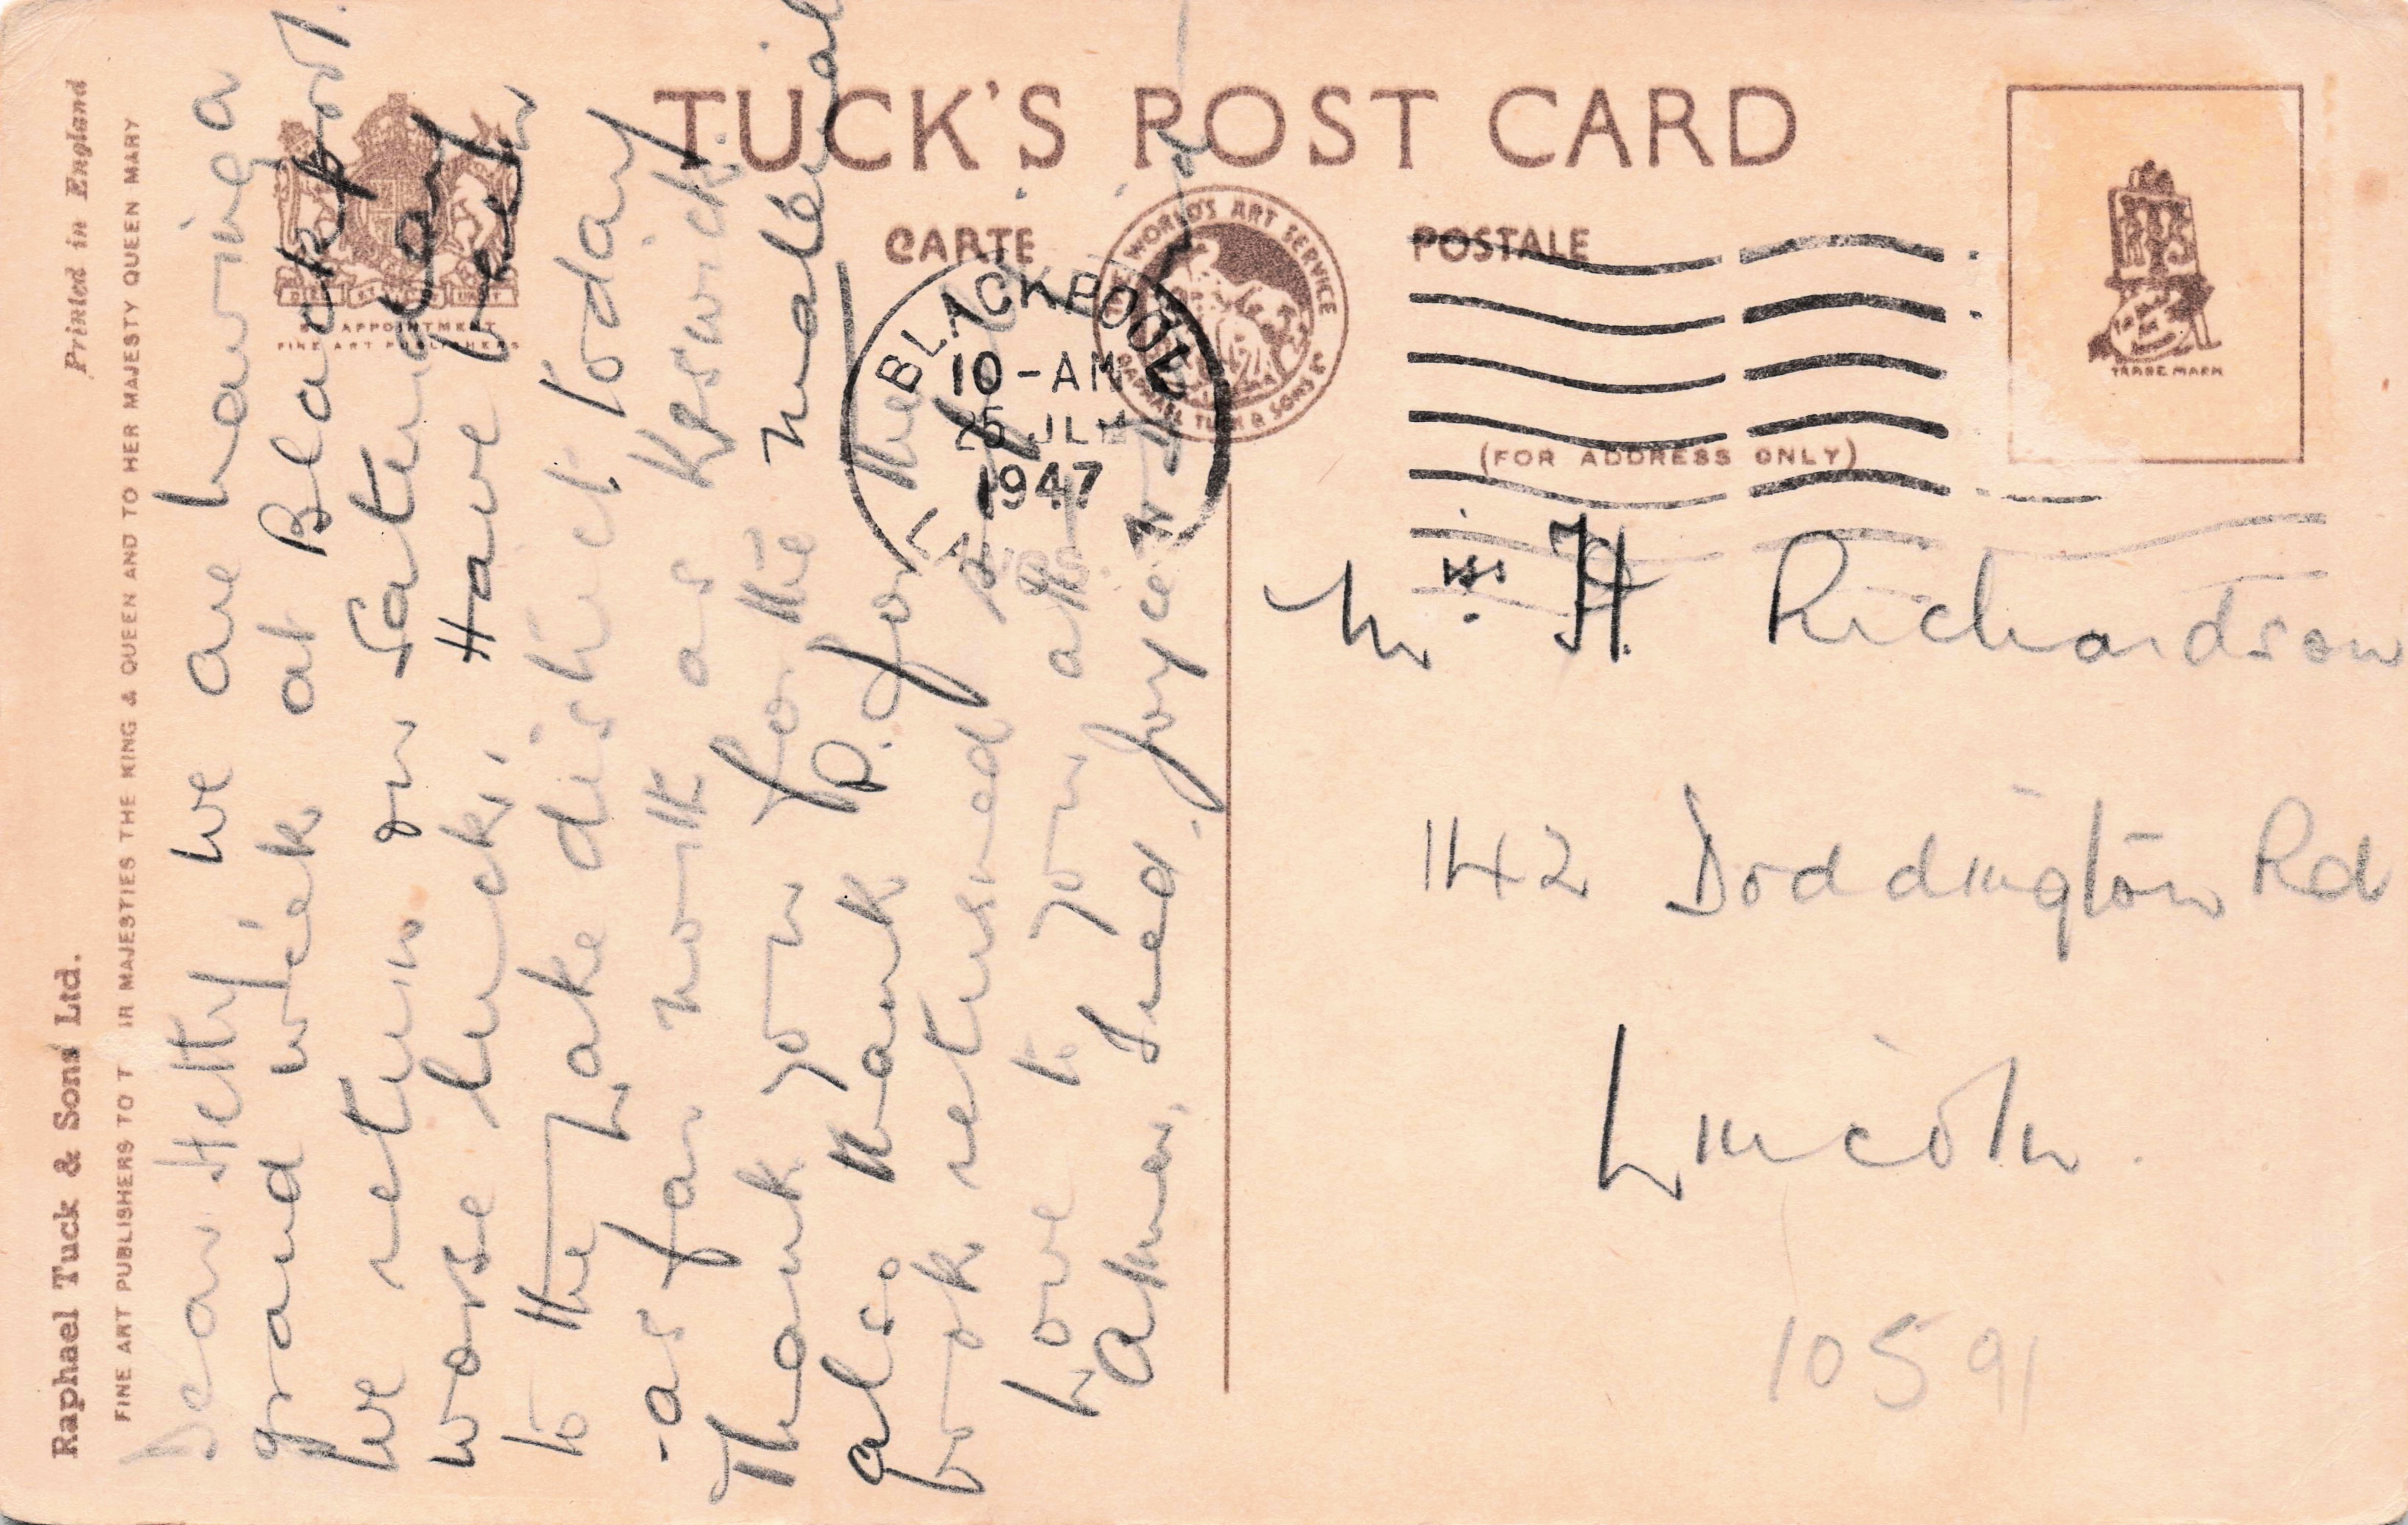 TUCK'S POST CARD
CARTE POSTALE
(FOR ADDRESS ONLY)
BY APPOINTMENT
FINE ART PUBLISHERS
THE WORLD'S ART SERVICE
RAPHAEL TUCK & SONS LD
TRADE MARK
BLACKPOOL
10 - AM
25 JLY
1947
LANCS.
Raphael Tuck & Sons Ltd. Printed in England
FINE ART PUBLISHERS TO T IR MAJESTIES THE KING & QUEEN AND TO HER MAJESTY QUEEN MARY
Dear Hetty we are having a
grand week at Blackpool.
We return on Saturday
worse luck. Have been
to the Lake district today
- as far north as Keswick.
Thank you for the material
also thank D. for the
book returned
Love to you all
Fred. Joyce
Mrs. H. Richardson
142 Doddington Rd
Lincoln.
10591